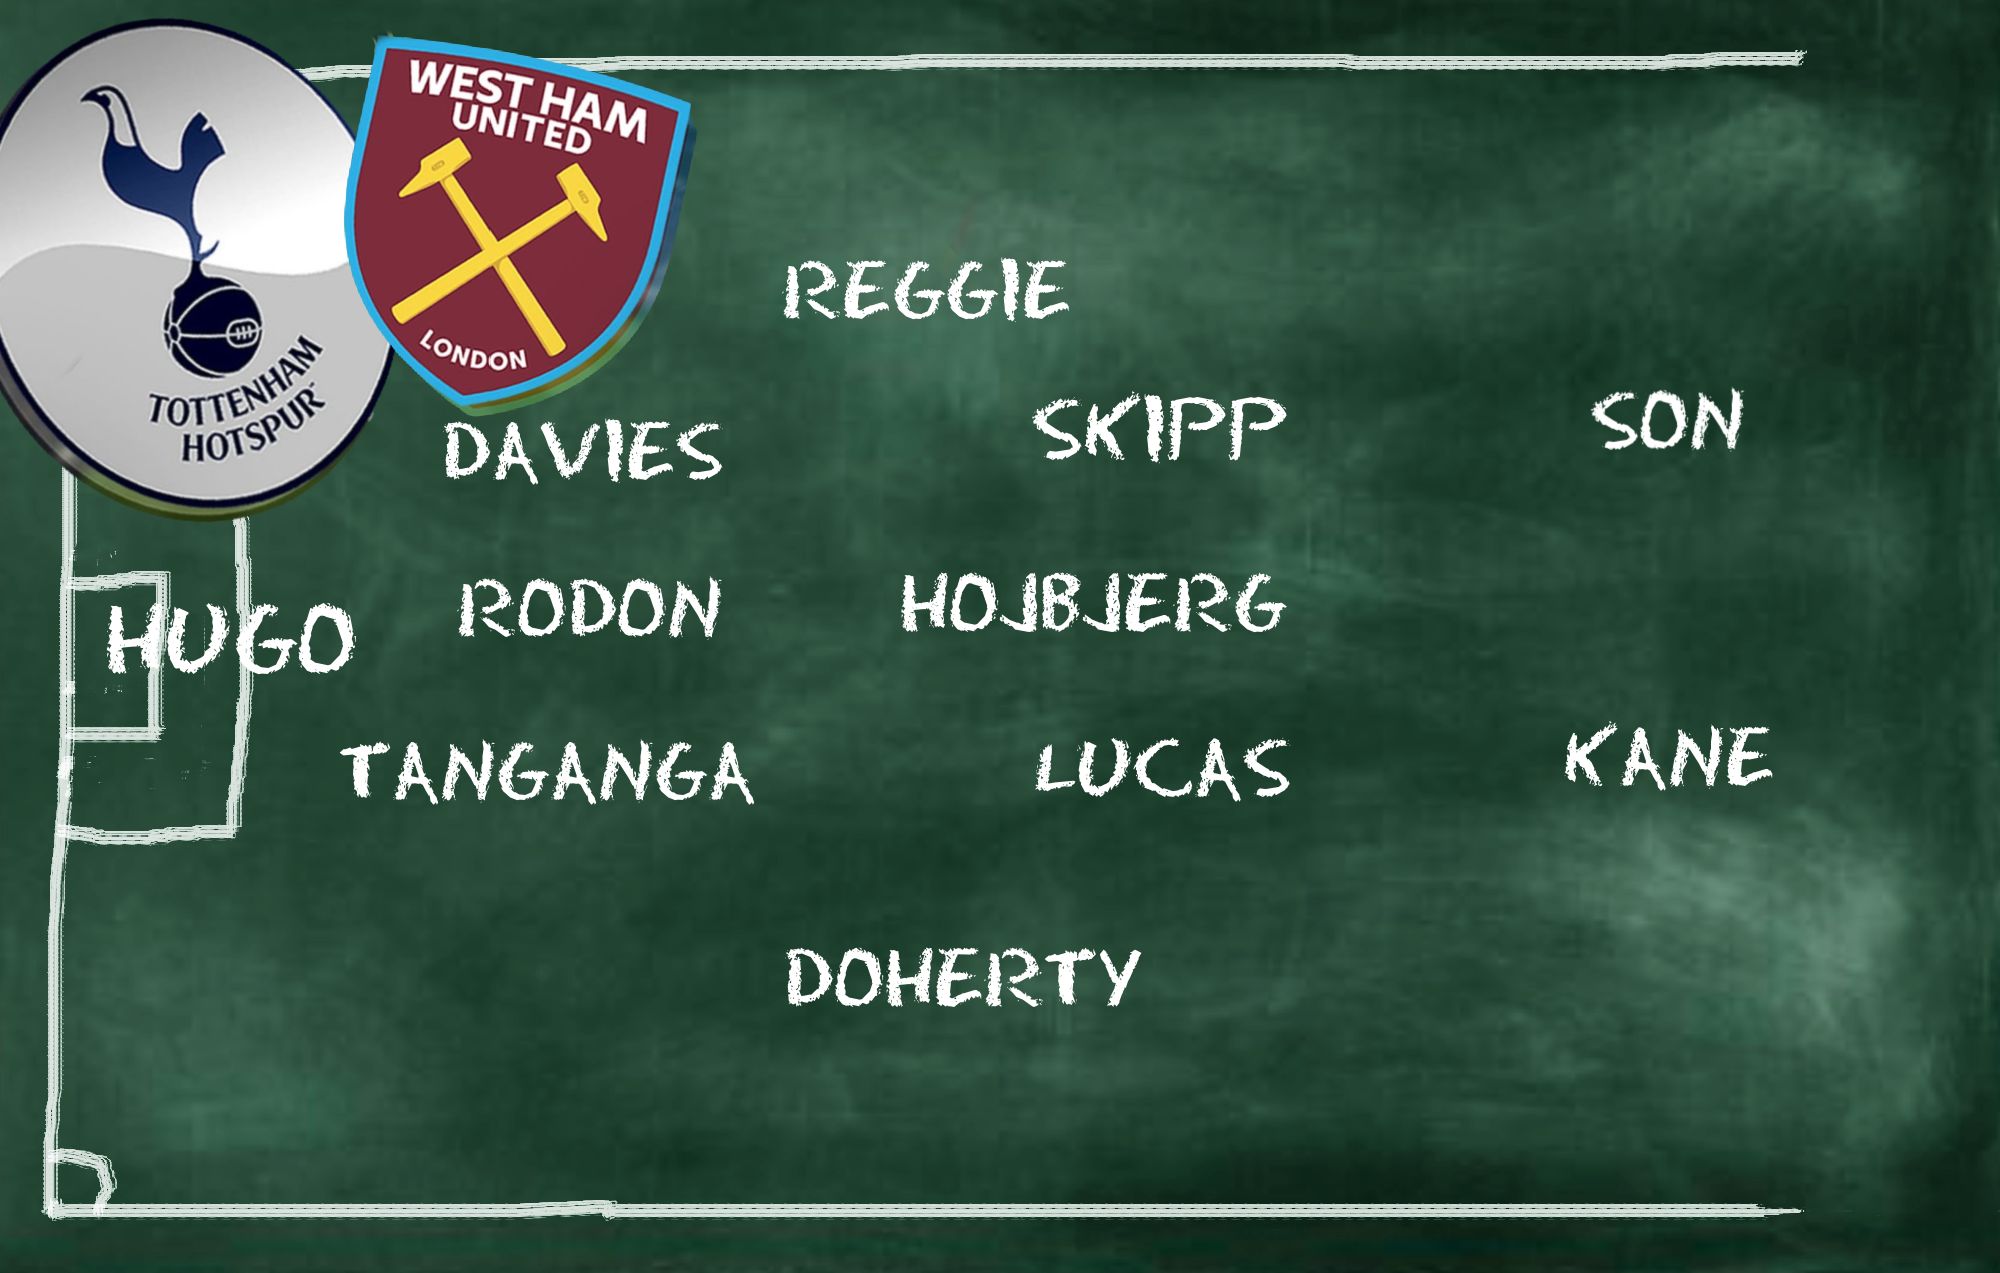 WEST HAM
UNITED
LONDON
TOTTENHAM
HOTSPUR
REGGIE
DAVIES
SKIPP
SON
HUGO
RODON
HOJBJERG
TANGANGA
LUCAS
KANE
DOHERTY